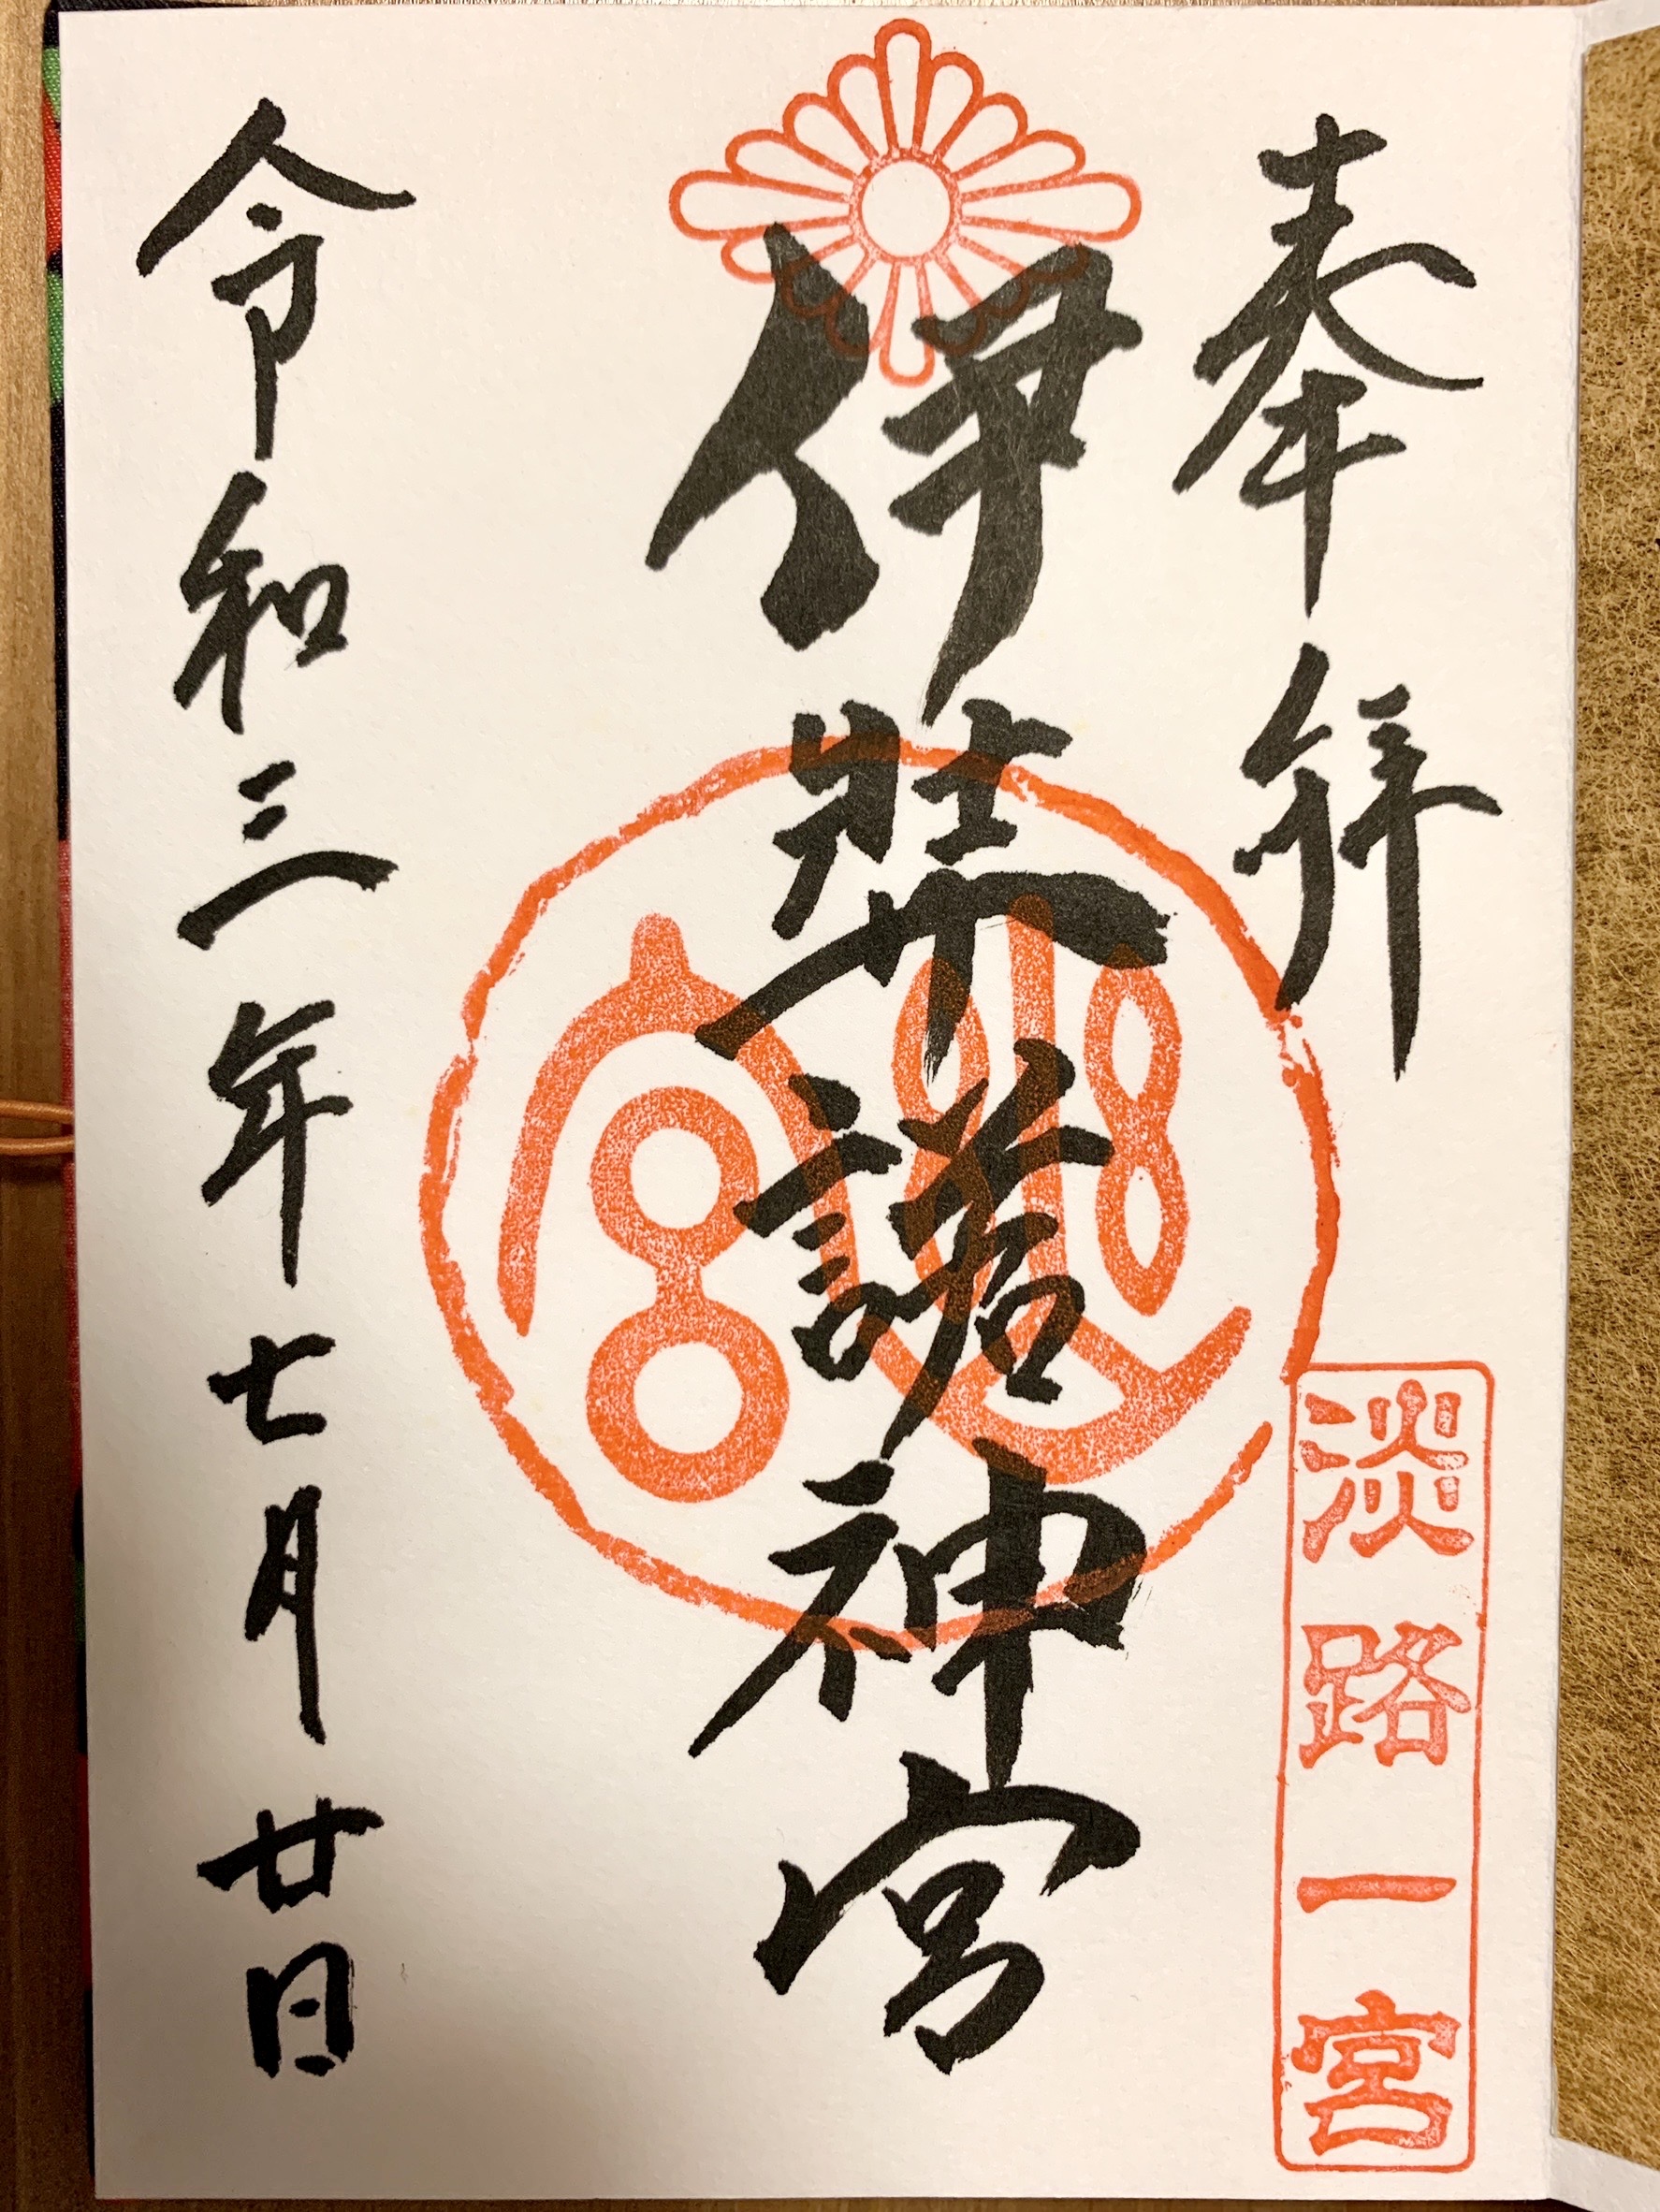 奉拝
淡路一宮
伊弉諾神宮
令和三年七月廿日